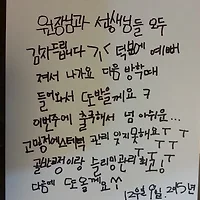 원장님과 선생님들 모두
감사드립니다 >_< 덕분에 예뻐
져서 나가요 다음 방학때
들어와서 또 받을께요 ?
이번주에 출국해서 넘 아쉬운...
고민전에스테틱 관리 잊지못해요ㅜㅜ
골반교정이랑 슬리밍관리 최고!
다음에 또 올께요^^
12월 9일.